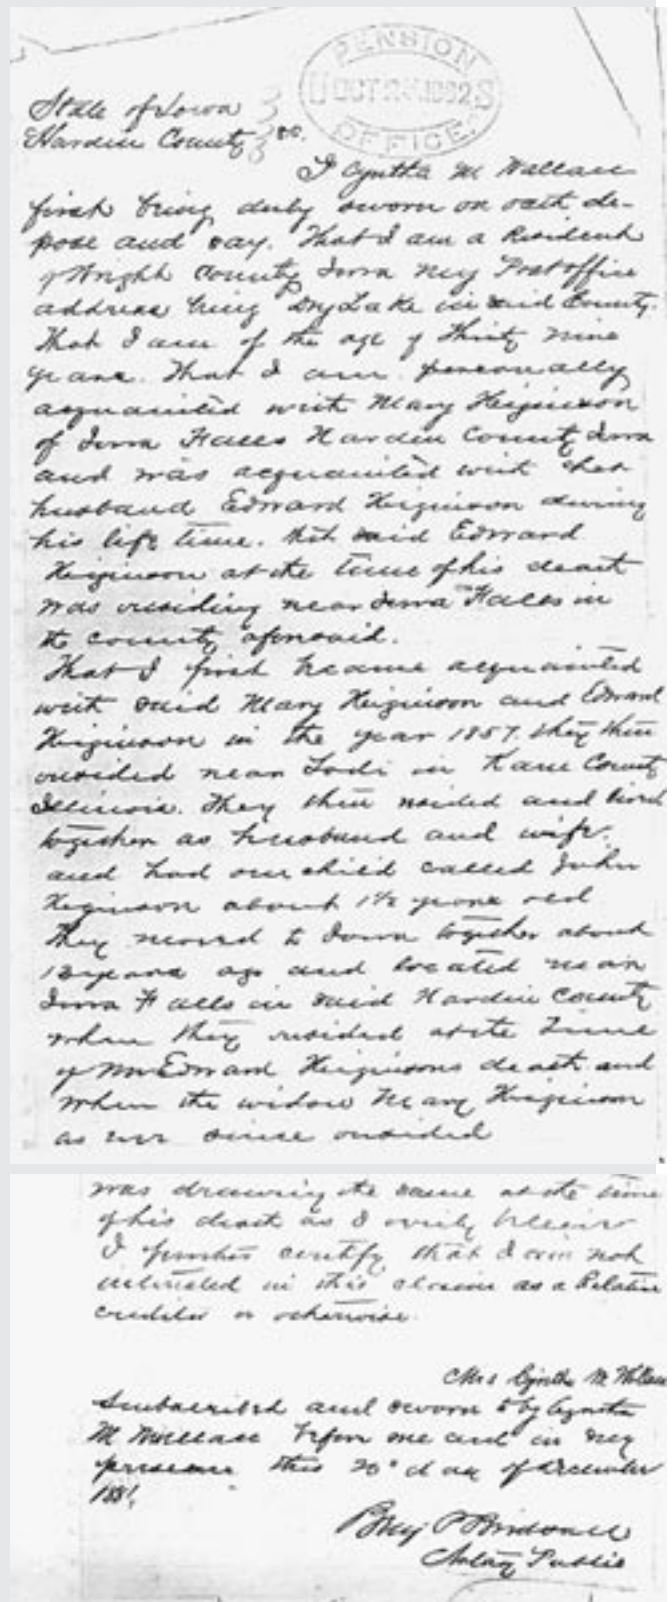 PENSION
U OCT 1882 S
OFFICE.
State of Iowa
Hardin County ss.
I Cyntha M Wallace
first being duly sworn on oath de-
pose and say. That I am a Resident
of Wright County Iowa my Postoffice
address being Dry Lake in said County.
That I am of the age of Thirty nine
years. That I am personally
acquainted with Mary Higinson
of Iowa Falls Hardin County Iowa
and was acquainted with her
husband Edward Higinson during
his life time. that said Edward
Higinson at the time of his death
was residing near Iowa Falls in
the county aforesaid.
That I first became acquainted
with said Mary Higinson and Edward
Higinson in the year 1857. they then
resided near Lodi in Kane County
Illinois. They then resided and lived
together as husband and wife.
and had one child called John
Higinson about 1½ years old
They moved to Iowa together about
years ago and located near
Iowa Falls in said Hardin County
where they resided at the time
of Mr Edward Higinsons death and
where the widow Mary Higinson
as ever since resided
was drawing the same at the time
of his death as I verily believe
I further certify that I am not
interested in this claim as a Relative
creditor or otherwise.
Mrs Cyntha M Wallace
Subscribed and sworn to by Cyntha
M Wallace before me and in my
presence this 20" day of December
1881,
Benj P Birdsall
Notary Public